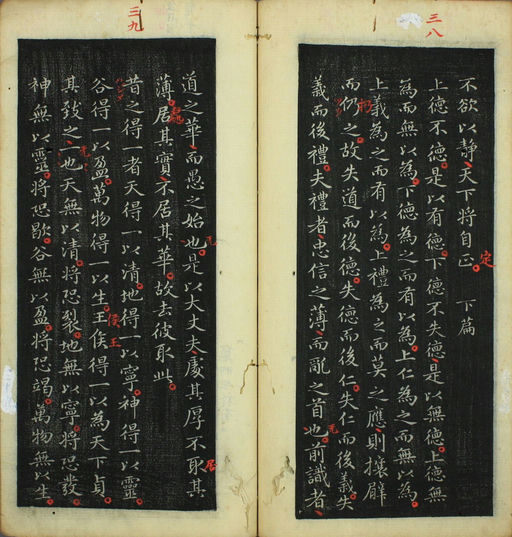 三八
不欲以静天下将自正 下篇
定
上德不德是以有德下德不失德是以無德上德無
為而無以為下德為之而有以為上仁為之而無以為
上義為之而有以為上禮為之而莫之應則攘臂
而仍之故失道而後德失德而後仁失仁而後義失
義而後禮夫禮者忠信之薄而亂之首也前識者
无
三九
道之華而愚之始也是以大丈夫處其厚不取其
无
居
薄居其實不居其華故去彼取此
處
昔之得一者天得一以清地得一以寧神得一以靈
谷得一以盈萬物得一以生王侯得一以為天下貞
侯王
其致之也天無以清将恐裂地無以寧将恐發
神無以靈将恐歇谷無以盈将恐竭萬物無以生